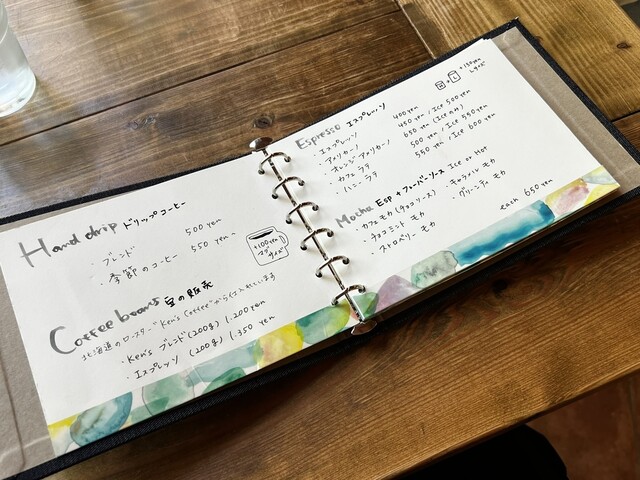 Hand drip ドリップコーヒー
・ブレンド 500 yen
・季節のコーヒー 550 yen~
+100yen マグサイズ!
Coffee beans 豆の販売
北海道のロースター"Ken's Coffee"から仕入れています
・Ken's ブレンド(200g) 1.200 yen
・エスプレッソ (200g) 1.350 yen
+130yen
Lサイズ
Espresso エスプレッソ
・エスプレッソ 400 yen
・アメリカーノ 450 yen / Ice 500 yen
・オレンジアメリカーノ 650 yen (Iceのみ)
・カフェラテ 500 yen / Ice 550 yen
・ハニーラテ 550 yen / Ice 600 yen
Mocha Esp + フレーバーソース Ice or Hot
・カフェモカ(チョコソース) ・キャラメルモカ
・チョコミントモカ ・グリーンティモカ
・ストロベリーモカ
each 650 yen